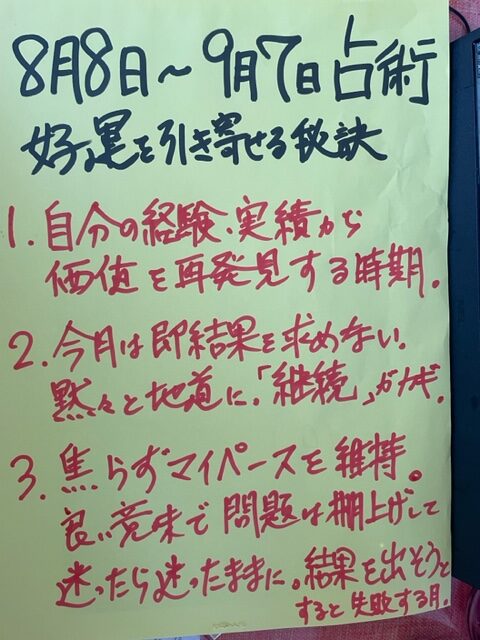 8月8日～9月7日占術
好運を引き寄せる秘訣
1.自分の経験、実績から
価値を再発見する時期。
2.今月は即結果を求めない。
黙々と地道に。「継続」がカギ。
3.焦らずマイペースを維持。
良い意味で問題は棚上げして
迷ったら迷ったままに。結果を出そうと
すると失敗する月。